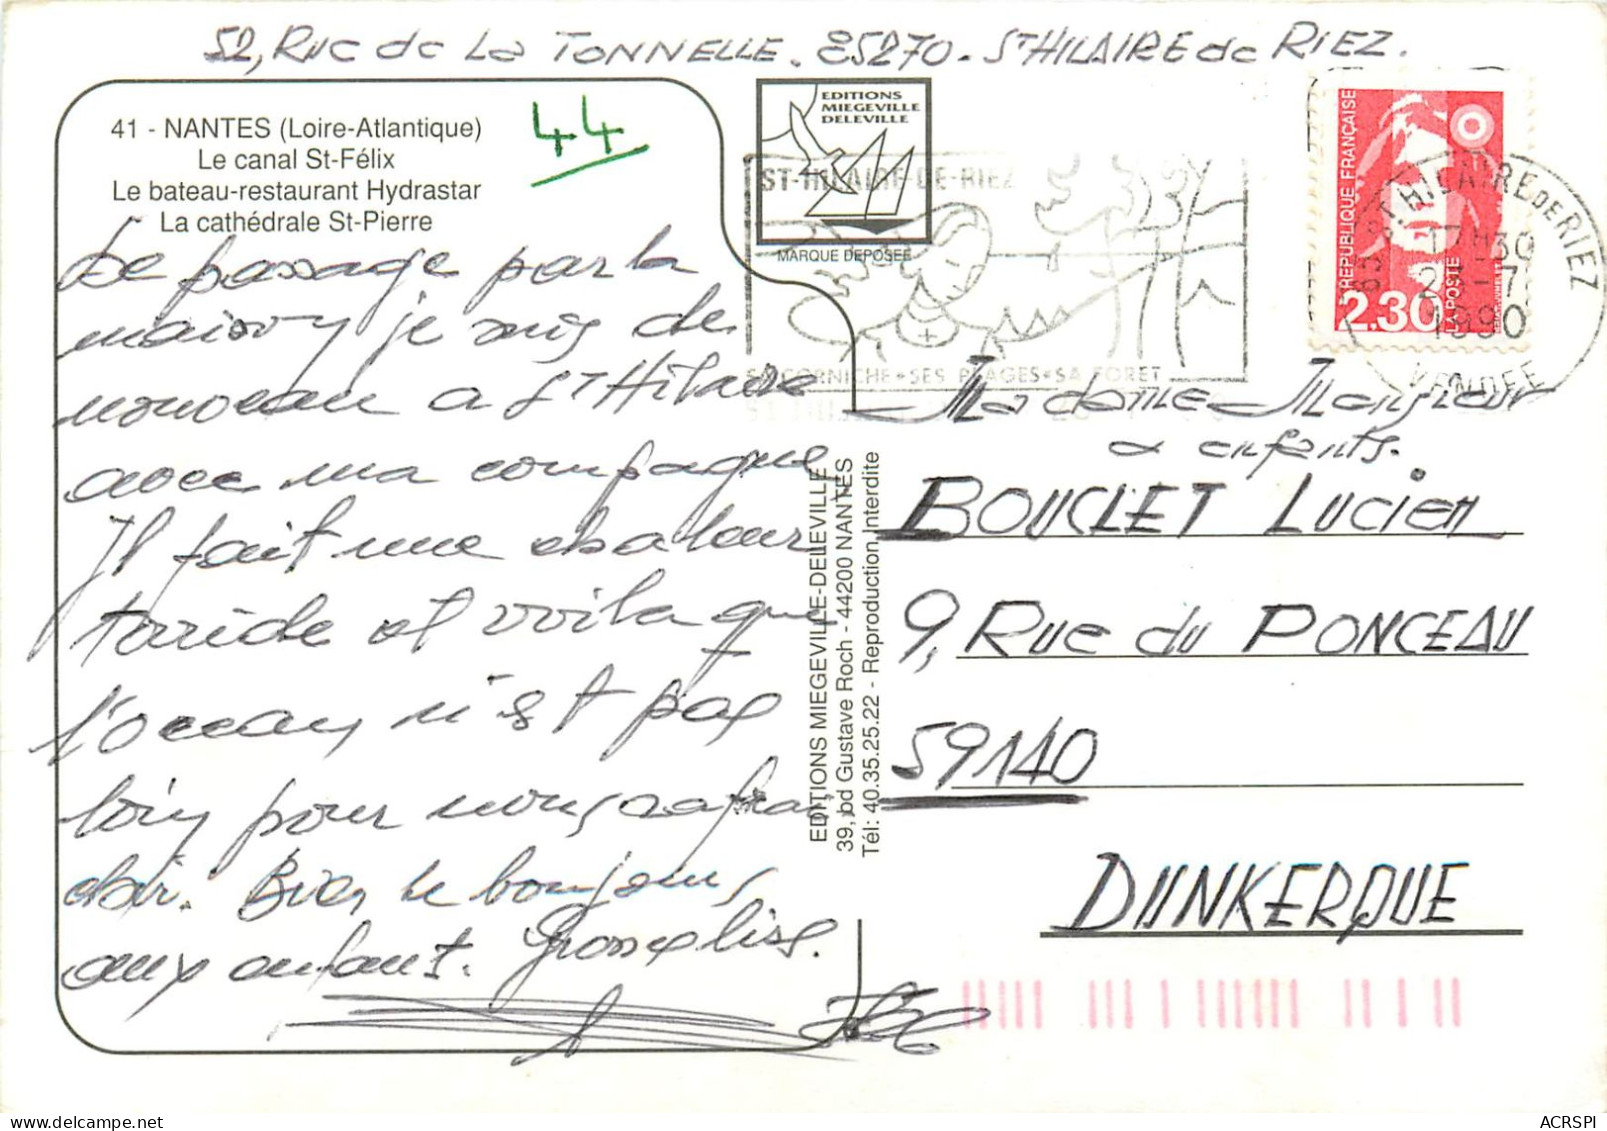 52, Rue de La TONNELLE. 85270. St HILAIRE de RIEZ.
41 - NANTES (Loire-Atlantique)
Le canal St-Félix
Le bateau-restaurant Hydrastar
La cathédrale St-Pierre
44
EDITIONS
MIEGEVILLE
DELEVILLE
MARQUE DEPOSEE
ST-HILAIRE-DE-RIEZ
SA CORNICHE • SES PLAGES • SA FORET
REPUBLIQUE FRANÇAISE
LA POSTE
2.30
85 ST HILAIRE DE RIEZ
17H30
1990
VENDEE
De passage par la
maison je suis de
nouveau a St Hilaire
avec ma compagne
Il fait une chaleur
torride et voila que
l'ocean n'est pas
loin pour nous rafrai
chir. Bien le bonjour
aux enfant. Grosses bises.
EDITIONS MIEGEVILLE-DELEVILLE
39, bd Gustave Roch - 44200 NANTES
Tél: 40.35.25.22 - Reproduction Interdite
Madame Monsieur
& enfants.
BOUCLET Lucien
9, Rue du PONCEAU
59140
DUNKERQUE
ACRSPI